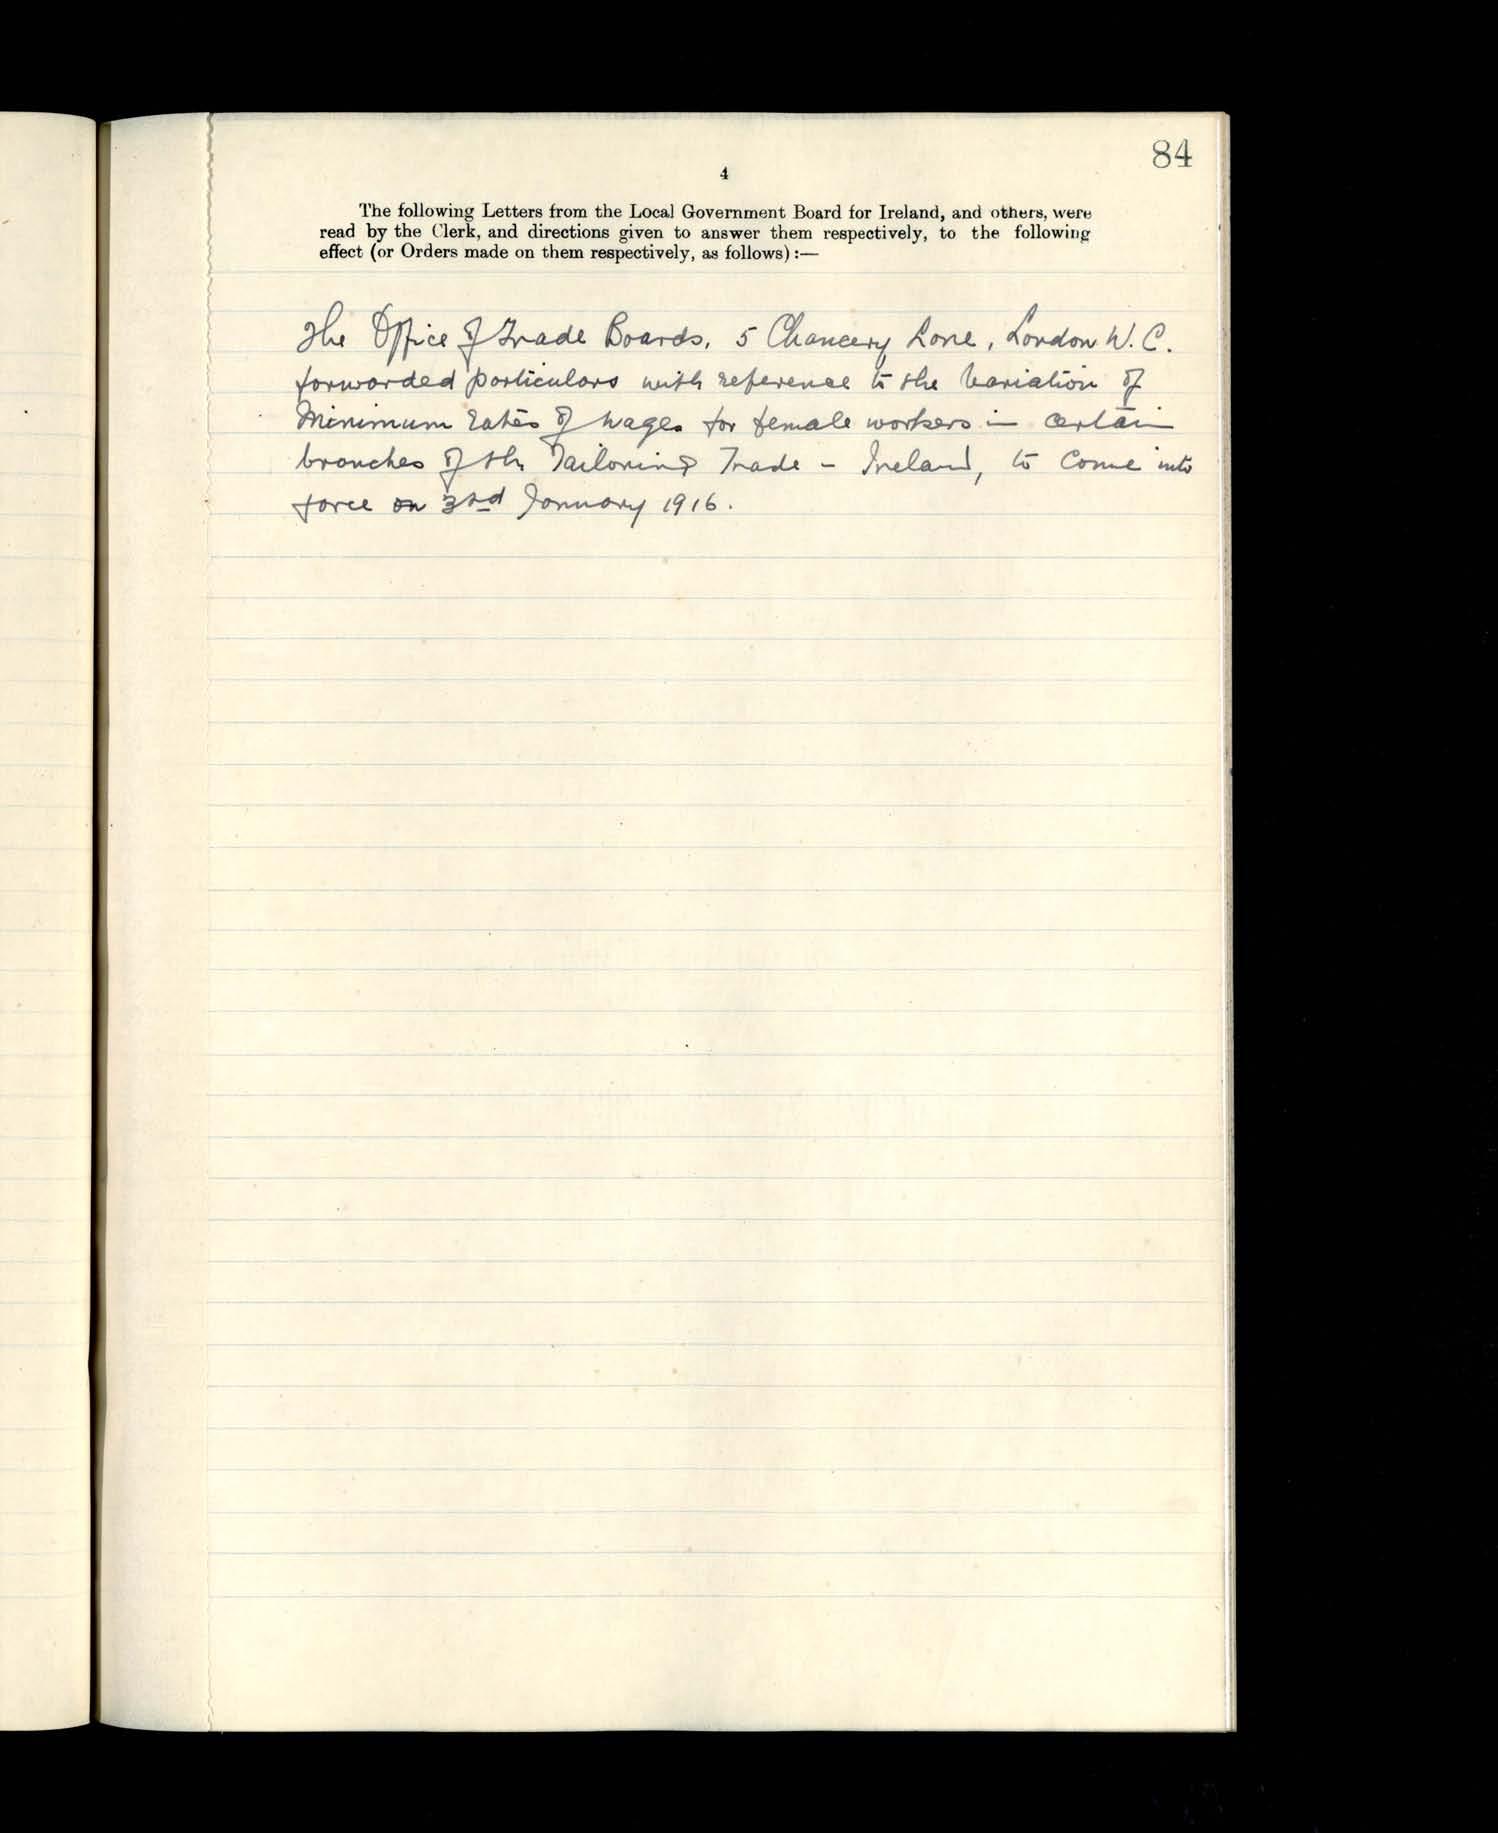 84
4
The following Letters from the Local Government Board for Ireland, and others, were
read by the Clerk, and directions given to answer them respectively, to the following
effect (or Orders made on them respectively, as follows) :—
The Office of Trade Boards, 5 Chancery Lane, London W. C.
forwarded particulars with reference to the Variation of
Minimum rates of wages for female workers in certain
branches of the Tailoring Trade - Ireland, to come into
force on 3rd January 1916.